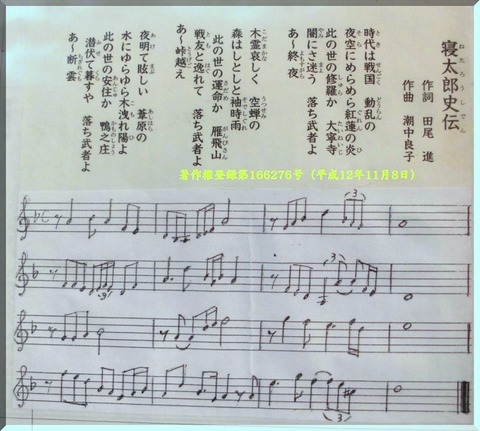 寝太郎史伝
作詞 田尾 進
作曲 潮中良子
時代は戦国 動乱の
夜空にめらめら紅蓮の炎
此の世の修羅か 大寧寺
闇にさ迷う 落ち武者よ
あ〜終夜
木霊哀しく 空蝉の
森はしとしと袖時雨
此の世の運命か 雁飛山
戦友と逸れて 落ち武者よ
あ〜峠越え
夜明て眩しい 葦原の
水にゆらゆら木洩れ陽よ
此の世の安住か 鴨之庄
潜伏て暮すや 落ち武者よ
あ〜断雲
著作権登録第166276号（平成12年11月8日）